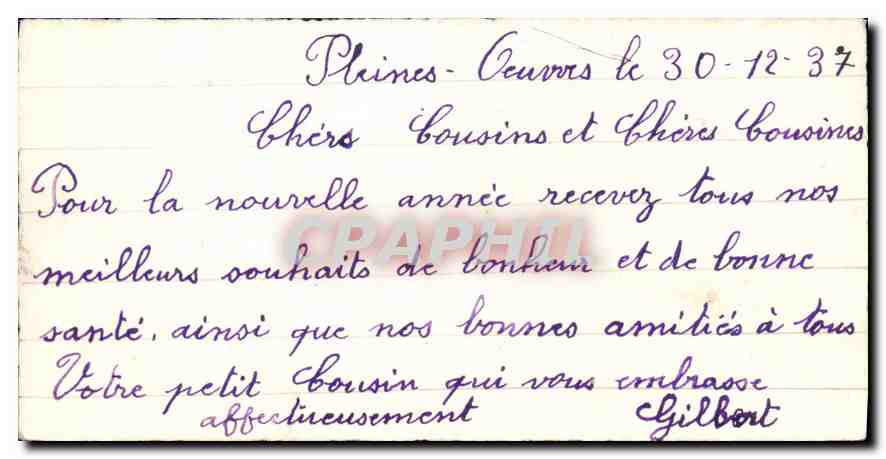 Pleines-Oeuvres le 30-12-37
Chérs Cousins et Chéres Cousines
Pour la nouvelle année recevez tous nos
CPAPHIL
meilleurs souhaits de bonheur et de bonne
santé, ainsi que nos bonnes amitiés à tous
Votre petit Cousin qui vous embrasse
affectueusement Gilbert